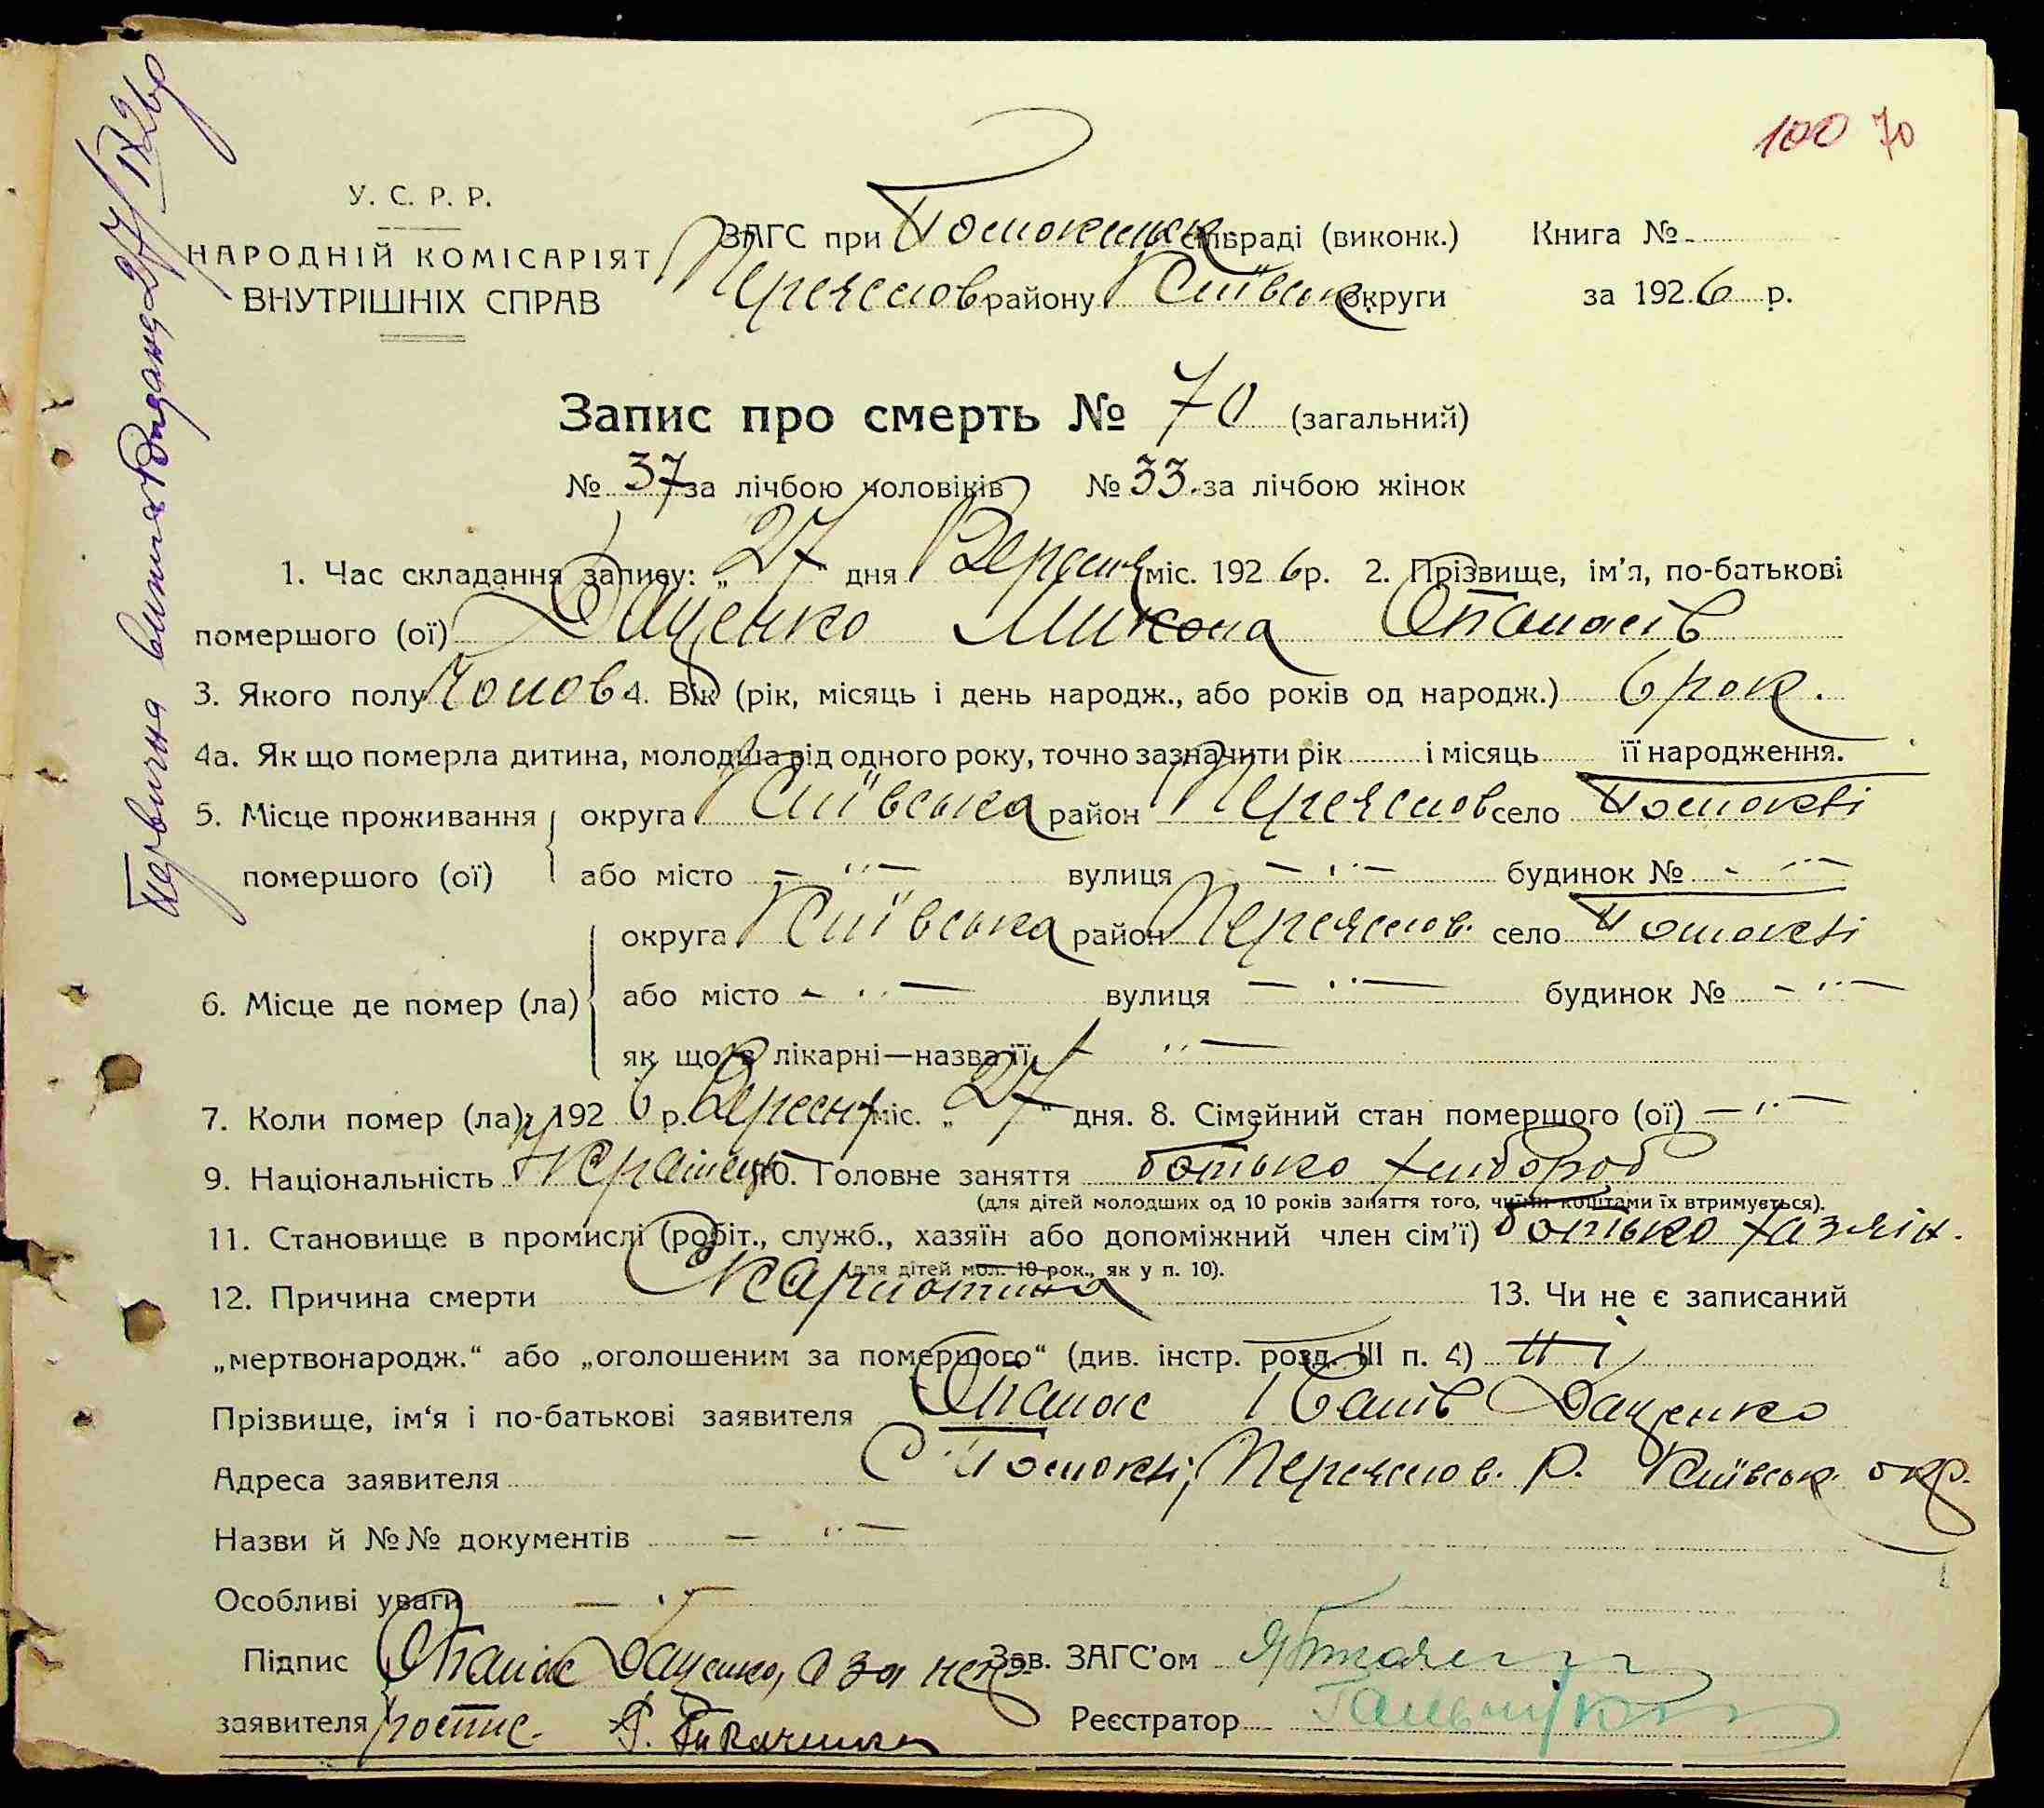 100 70
У. С. Р. Р.
НАРОДНІЙ КОМІСАРІЯТ
ВНУТРІШНІХ СПРАВ
ЗАГС при Помокельск сільраді (виконк.) Книга №
Переяслов району Київськ округи за 1926 р.
Запис про смерть № 70 (загальний)
№ 37 за лічбою чоловіків № 33. за лічбою жінок
1. Час складання запису: „27 дня Вересня міс. 1926 р. 2. Прізвище, ім'я, по-батькові
помершого (ої) Даценко Микола Опанасів
3. Якого полу Чолов 4. Вік (рік, місяць і день народж., або років од народж.) 6 рок.
4а. Як що померла дитина, молодша від одного року, точно зазначити рік і місяць її народження.
5. Місце проживання помершого (ої) округа Київська район Переяслов село Помоклі
або місто — " — вулиця — " — будинок № - " —
6. Місце де помер (ла) округа Київська район Переяслов. село Помоклі
або місто - " — вулиця — " — будинок № - " —
як що в лікарні—назва її - " —
7. Коли помер (ла) 1926 р. Вересня міс. „27" дня. 8. Сімейний стан помершого (ої) — " —
9. Національність Українець 10. Головне заняття батько хлибороб
(для дітей молодших од 10 років заняття того, чиїми коштами їх втримується).
11. Становище в промислі (робіт., служб., хазяїн або допоміжний член сім'ї) батько хазяін.
(для дітей мол. 10 рок., як у п. 10).
12. Причина смерти Скарлотина 13. Чи не є записаний
„мертвонародж.“ або „оголошеним за помершого“ (див. інстр. розд. III п. 4) Ні
Прізвище, ім‘я і по-батькові заявителя Опанас Іванів Даценко
Адреса заявителя С. Помоклі, Переяслов. р. Київськ. окр.
Назви й №№ документів — " —
Особливі уваги — " —
Підпис заявителя Опанас Даценко, а за негр. роспис.
Зав. ЗАГС'ом
Реєстратор
Первична виписка видана 27/IX 26р